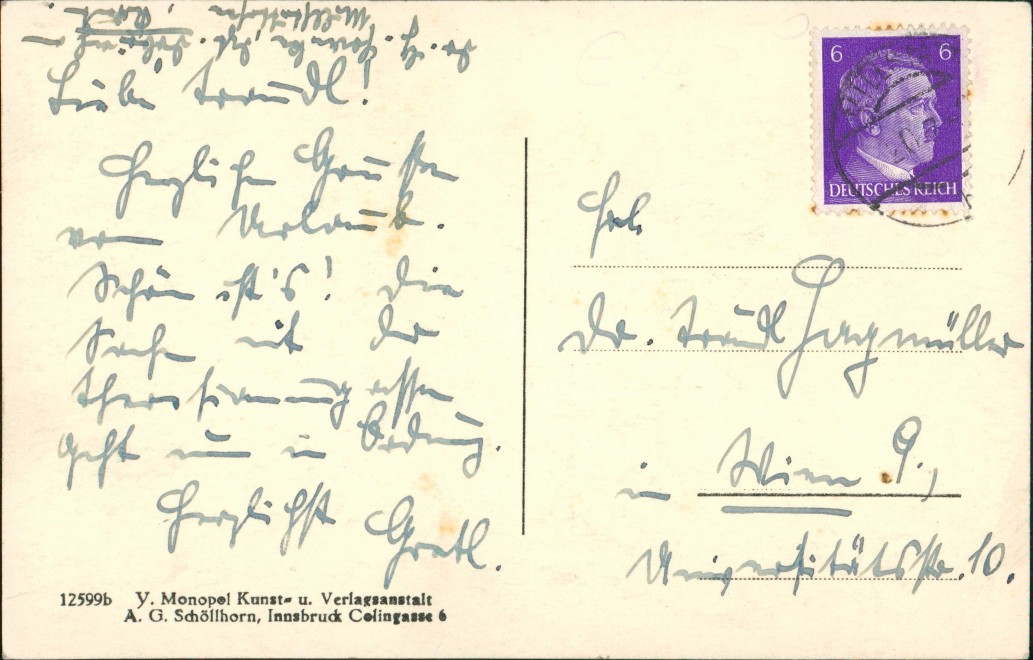 Liebe Traudl!
Herzliche Grüsse
vom Urlaub.
Schön ist's! Die
Sache mit der
Theresianumgasse
geht nun in Ordnung.
Herzlichst
Gretl.
12599b V. Monopol Kunst- u. Verlagsanstalt
A. G. Schöllhorn, Innsbruck Colingasse 6
6 6
DEUTSCHES REICH
Frl.
Dr. Traudl Hagmüller
in Wien 9.,
Universitätsstr. 10.